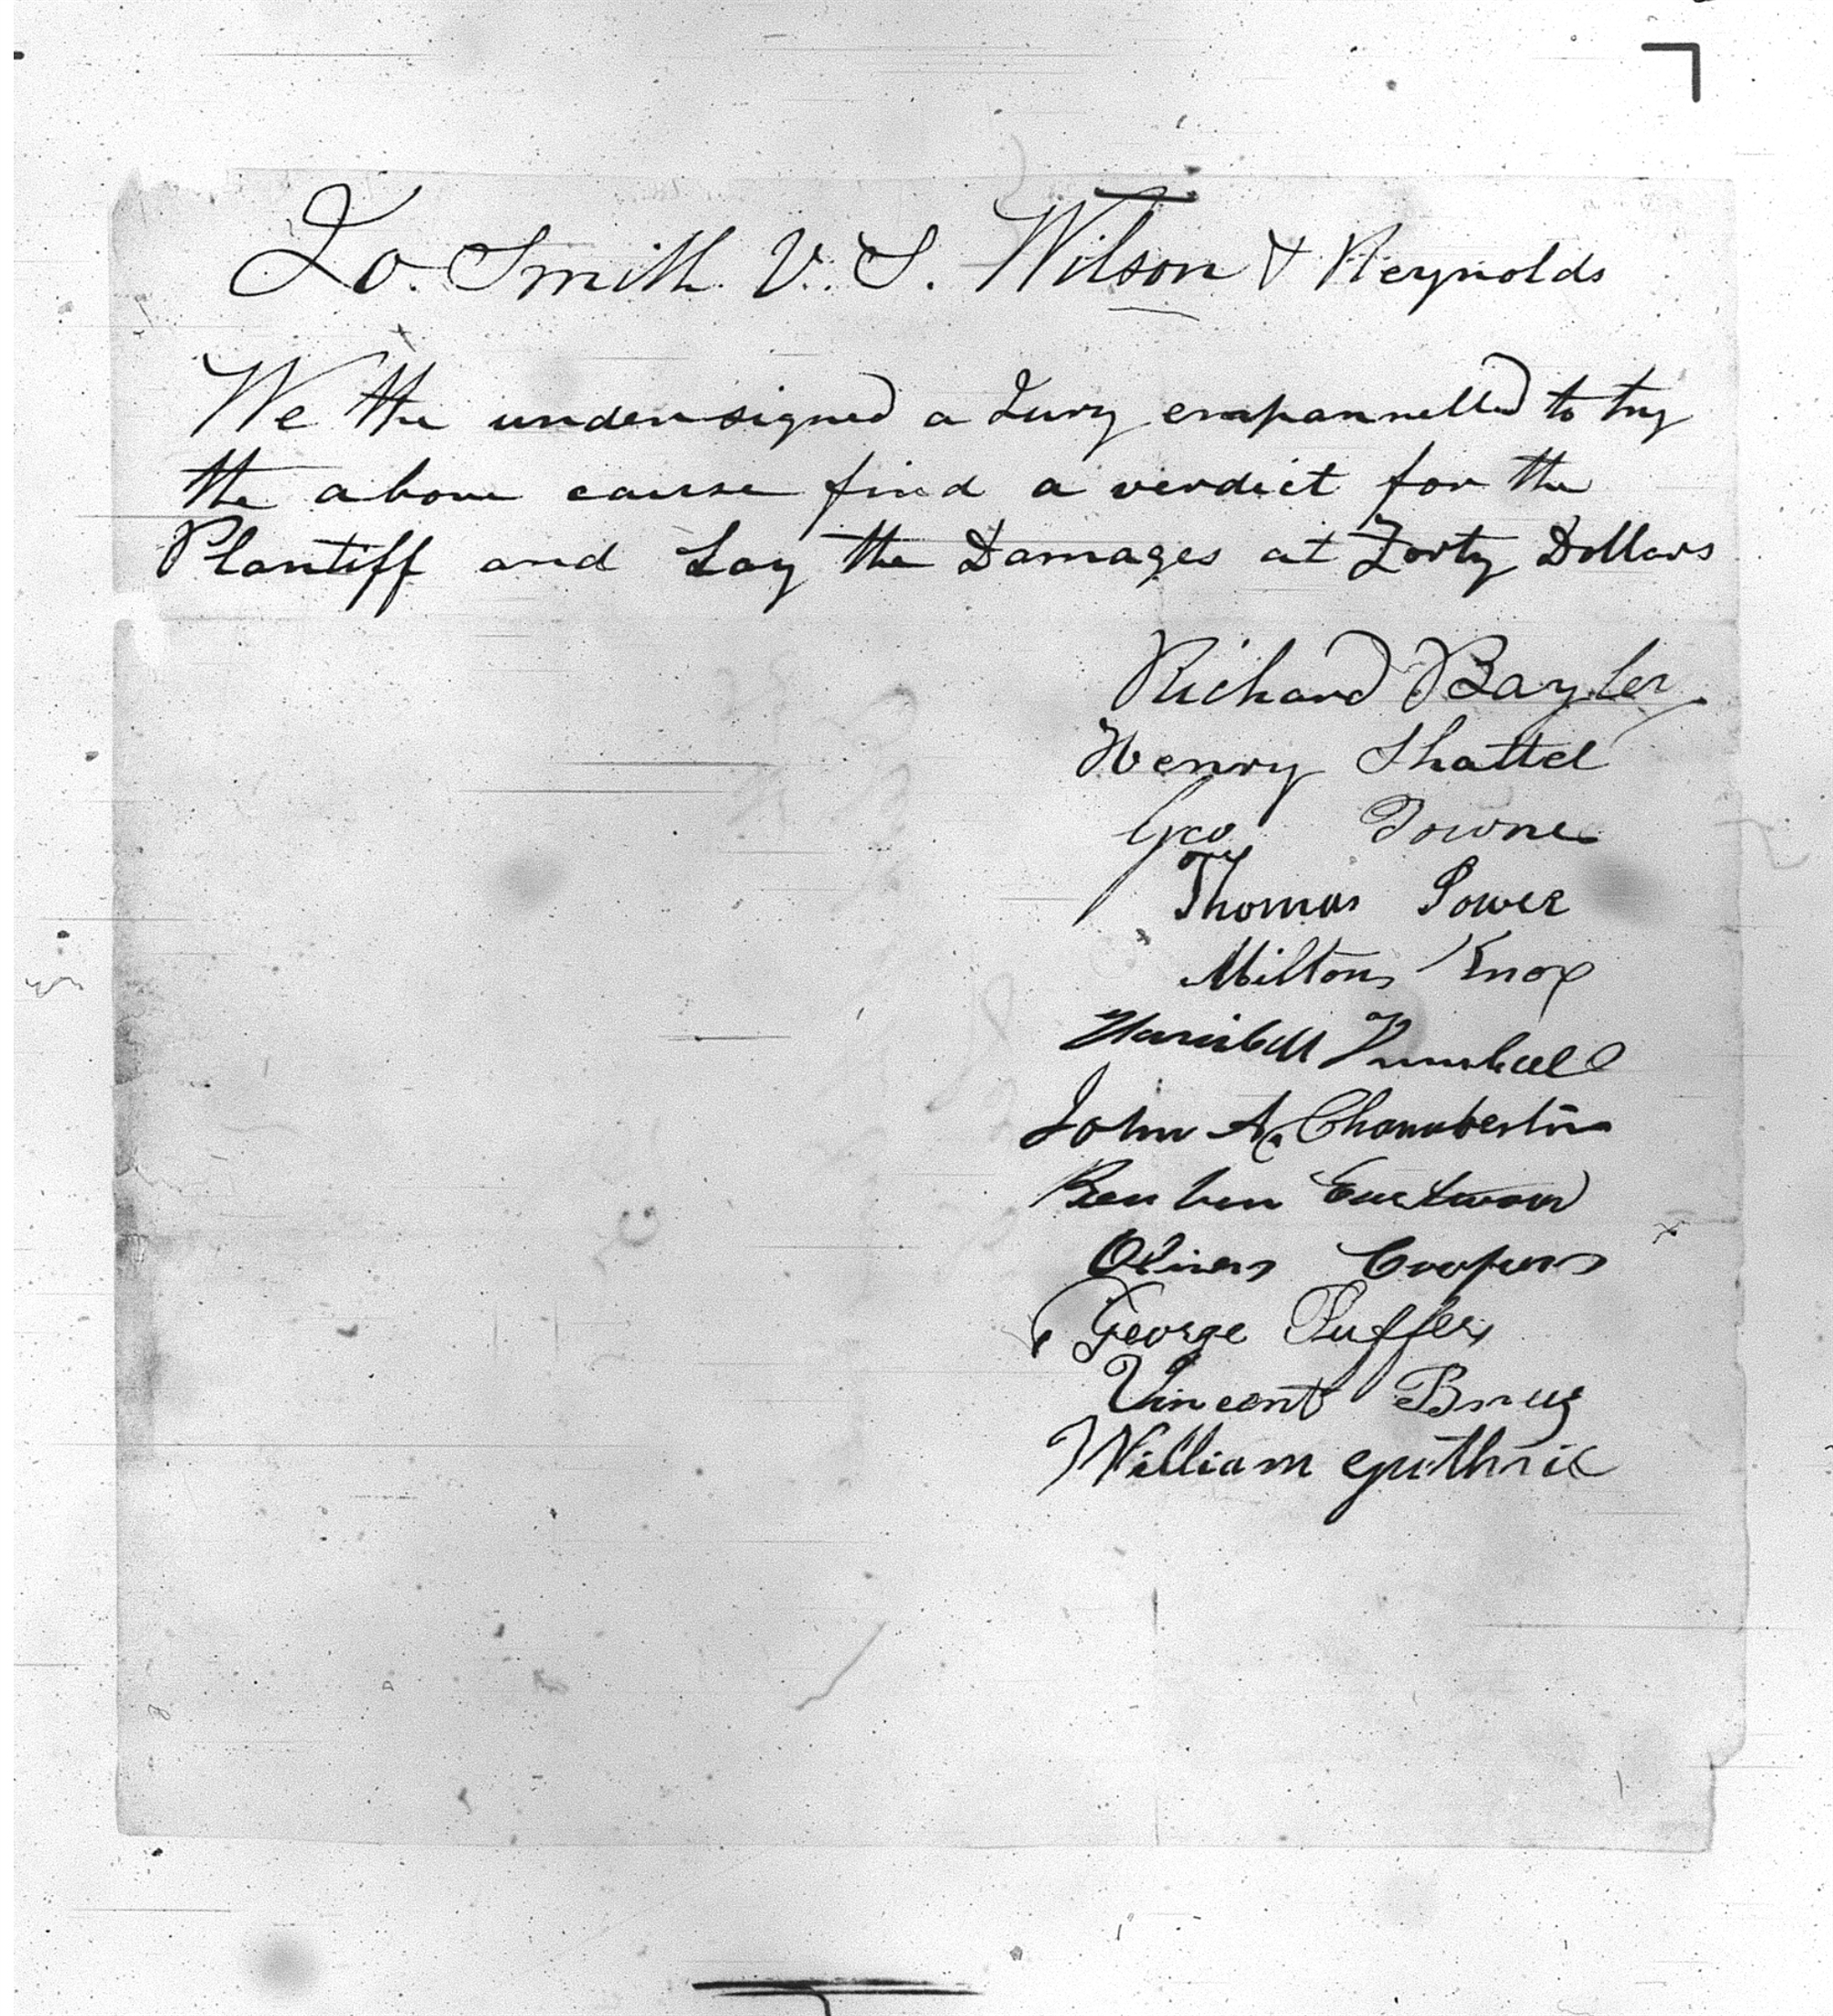 Jo. Smith. V. S. Wilson & Reynolds
We the undersigned a Jury empannelled to try
the above cause find a verdict for the
Plantiff and Lay the Damages at Forty Dollars
Richard Bayler
Henry Shattel
Geo Towne
Thomas Power
Milton Knox
John A. Chamberlin
Reuben Eastwood
Oliver Cooper
George Puffer
Vincent
William guthrie